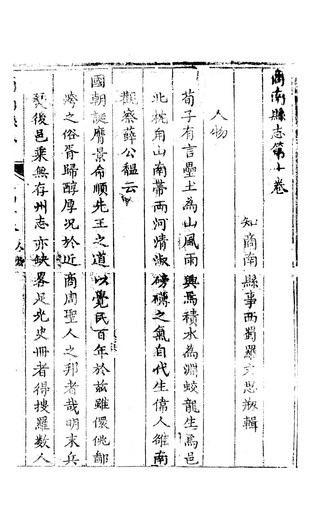 商南縣志第十卷
知商南縣事西蜀羅文思補輯
人物
荀子有言壘土為山風雨興焉積水為淵蛟龍生焉邑
北枕角山南帶兩河清淑磅礴之氣自代生偉人維南
觀察薛公韞云
國朝誕膺景命順先王之道以覺民百年於茲雖儇佻鄙
嗇之俗胥歸醇厚況於近商周聖人之邦者哉明末兵
燹後邑乘無存州志亦缺畧足光史冊者得搜羅數人
人物